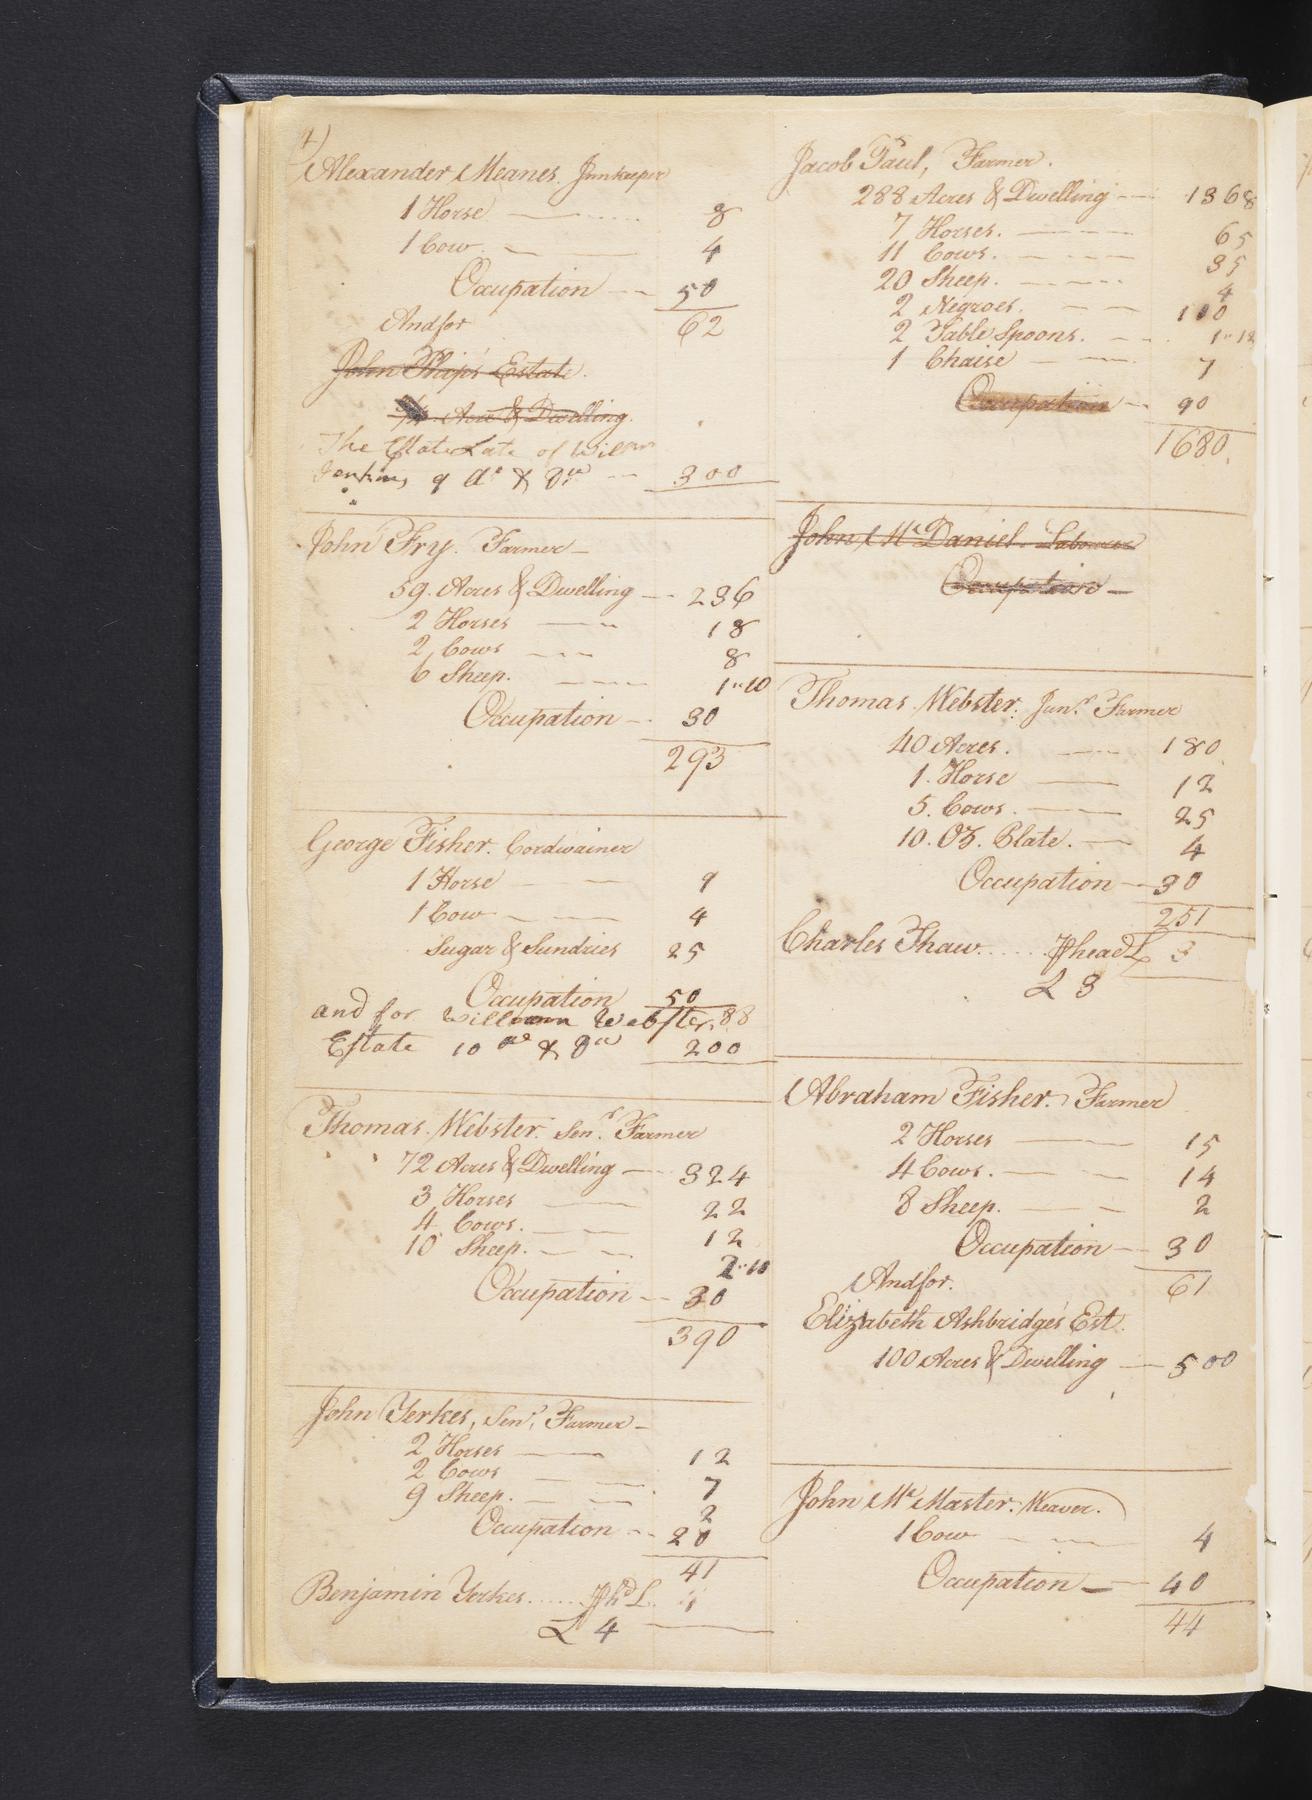 4)
Alexander Meanes. Innkeeper
1 Horse 8
1 Cow 4
Occupation 50
And for 62
John Philips' Estate.
Acre & Dwelling.
The Estate Late of Willm
Jenkins 9 As & Da 300
John Fry. Farmer
59. Acres & Dwelling 236
2 Horses 18
2 Cows 8
6 Sheep. 1"10
Occupation 30
293
George Fisher. Cordwainer
1 Horse 9
1 Cow 4
Sugar & Sundries 25
Occupation 50
and for William Webster, 88
Estate 10 as & Da 200
Thomas Webster. Senr. Farmer
72 Acres & Dwelling 324
3 Horses 22
4 Cows. 12
10 Sheep. 2"10
Occupation 30
390
John Yerkes, Senr. Farmer
2 Horses 12
2 Cows 7
9 Sheep. 2
Occupation 20
41
Benjamin Yerkes...... Phd L. 4
£ 4
Jacob Paul, Farmer.
288 Acres & Dwelling 1368
7 Horses. 65
11 Cows. 35
20 Sheep. 4
2 Negroes. 110
2 Table Spoons. 1"12
1 Chaise 7
Occupation 90
1680
John McDaniel. Labourer
Occupation
Thomas Webster. Junr. Farmer
40 Acres. 180
1. Horse 12
5. Cows. 25
10. Oz. Plate. 4
Occupation 30
251
Charles Thaw...... Phead £ 3
£ 3
Abraham Fisher. Farmer
2 Horses 15
4 Cows. 14
8 Sheep. 2
Occupation 30
And for. 61
Elizabeth Ashbridge's Est.
100 Acres & Dwelling 500
John McMaster. Weaver.
1 Cow 4
Occupation 40
44